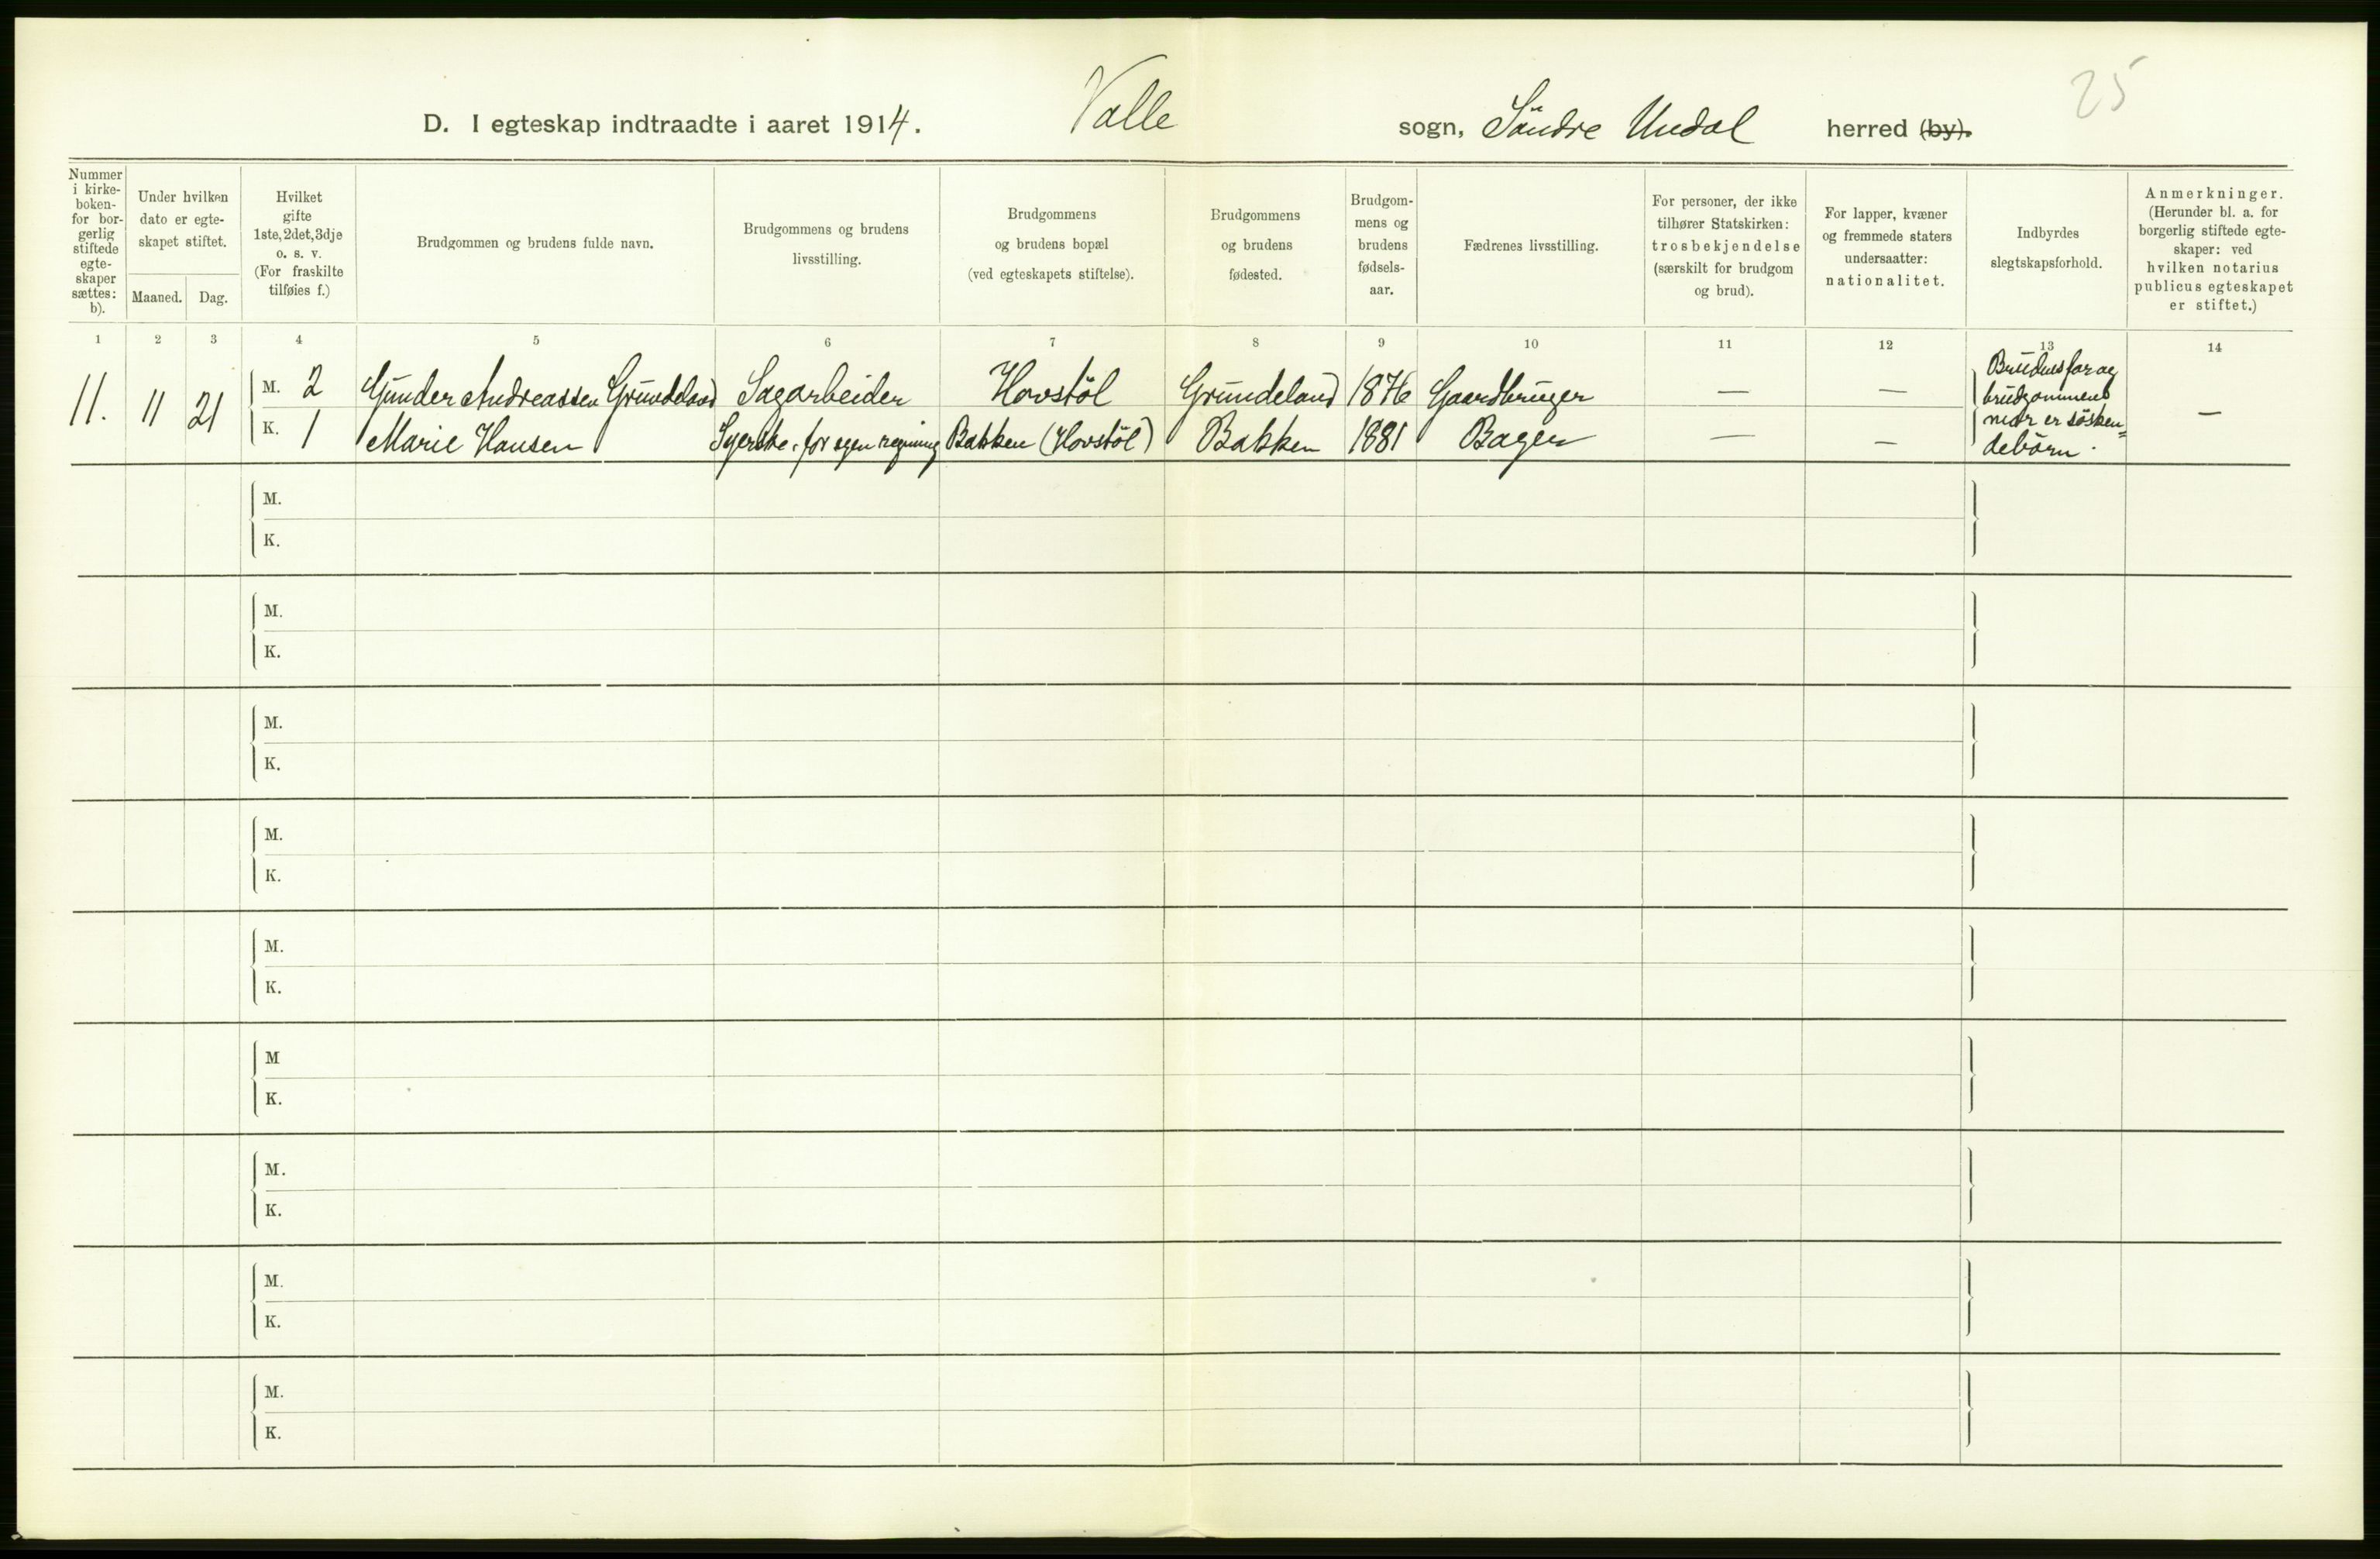 25
D. I egteskap indtraadte i aaret 1914. Valle sogn, Söndre Undal herred (by).
Nummer i kirke- boken- for bor- gerlig stiftede egte- skaper sættes: b).
Under hvilken dato er egte- skapet stiftet.
Maaned. Dag.
Hvilket gifte 1ste, 2det, 3dje o. s. v. (For fraskilte tilføies f.)
Brudgommen og brudens fulde navn.
Brudgommens og brudens livsstilling.
Brudgommens og brudens bopæl (ved egteskapets stiftelse).
Brudgommens og brudens fødested.
Brudgom- mens og brudens fødsels- aar.
Fædrenes livsstilling.
For personer, der ikke tilhører Statskirken: trosbekjendelse (særskilt for brudgom og brud).
For lapper, kvæner og fremmede staters undersaatter: nationalitet.
Indbyrdes slegtskapsforhold.
Anmerkninger. (Herunder bl. a. for borgerlig stiftede egte- skaper: ved hvilken notarius publicus egteskapet er stiftet.)
1 2 3 4 5 6 7 8 9 10 11 12 13 14
11. 11 21
M. 2 Gunder Andreassen Grundeland Sagarbeider Hovstöl Grundeland 1876 Gaardbruger — —
K. 1 Marie Hansen Syerske, for egen regning Bakken (Hovstöl) Bakken 1881 Bager — —
Brudens far og
brudgommens
mor er søsken=
debörn.
—
M.
K.
M.
K.
M.
K.
M.
K.
M.
K.
M
K.
M.
K.
M.
K.
M.
K.